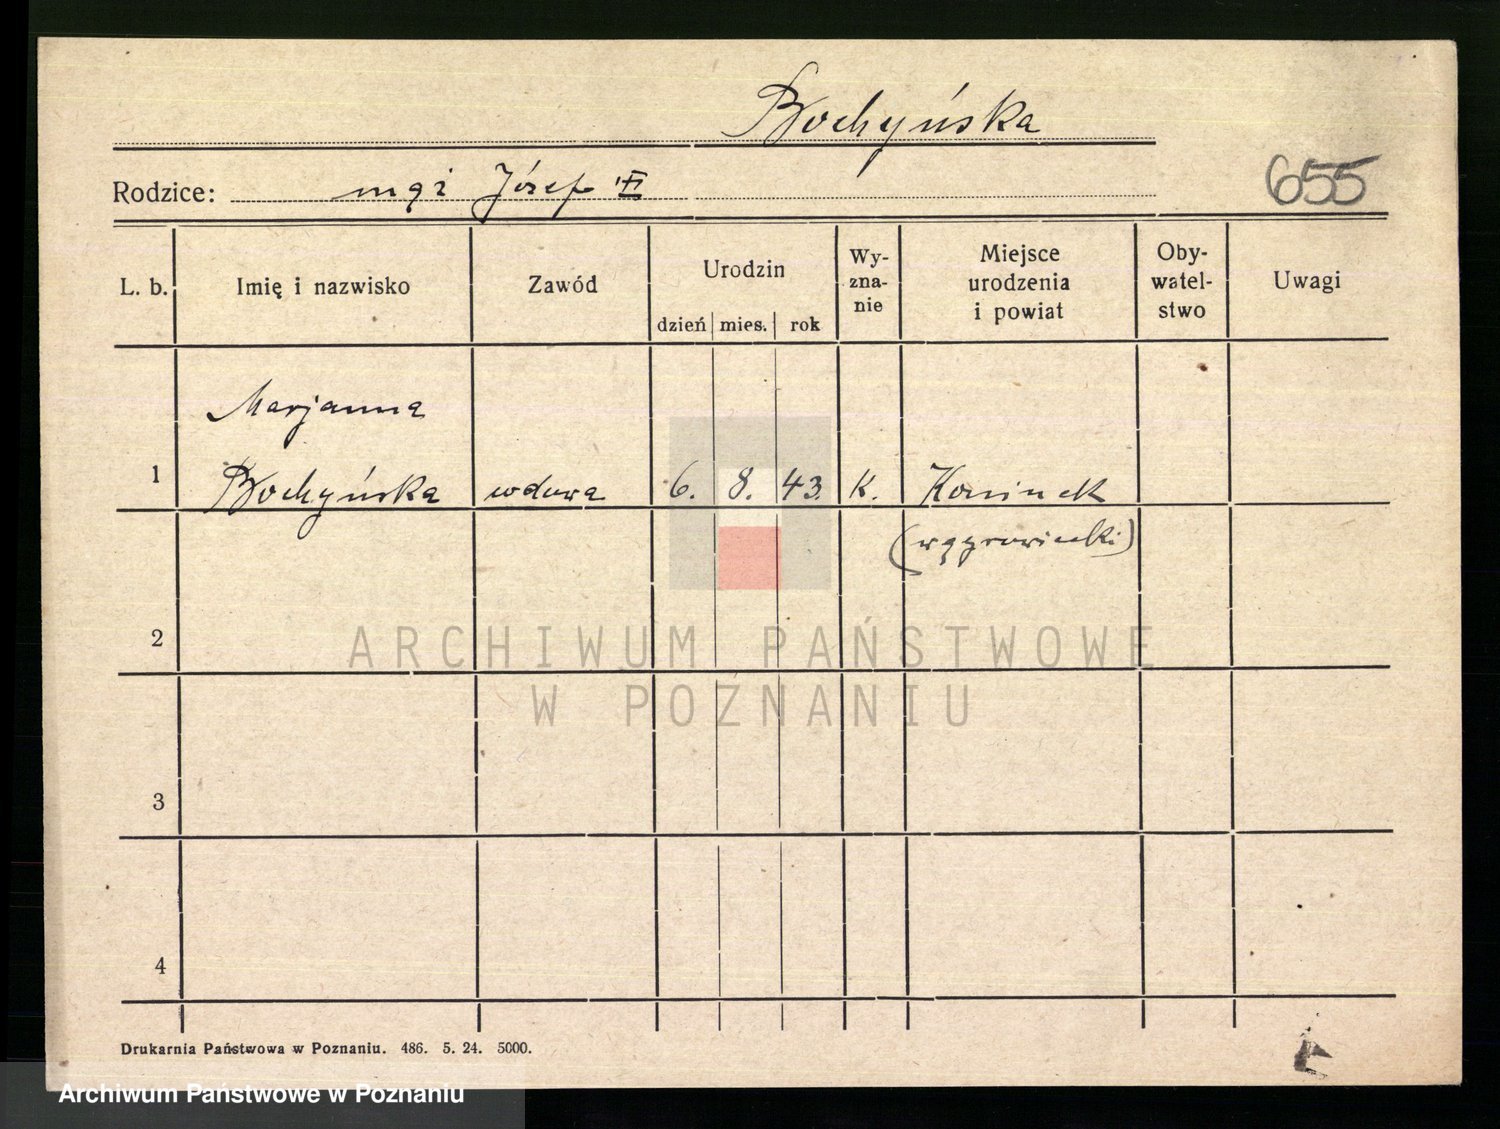 Bochyńska
Rodzice: mąż Józef
655
L. b. Imię i nazwisko Zawód Urodzin dzień mies. rok Wy-zna-nie Miejsce urodzenia i powiat Oby-watel-stwo Uwagi
Marjanna
1 Bochyńska wdowa 6. 8. 43. K.
(wągrowiecki)
2
3
4
ARCHIWUM PAŃSTWOWE
W POZNANIU
Drukarnia Państwowa w Poznaniu. 486. 5. 24. 5000.
Archiwum Państwowe w Poznaniu